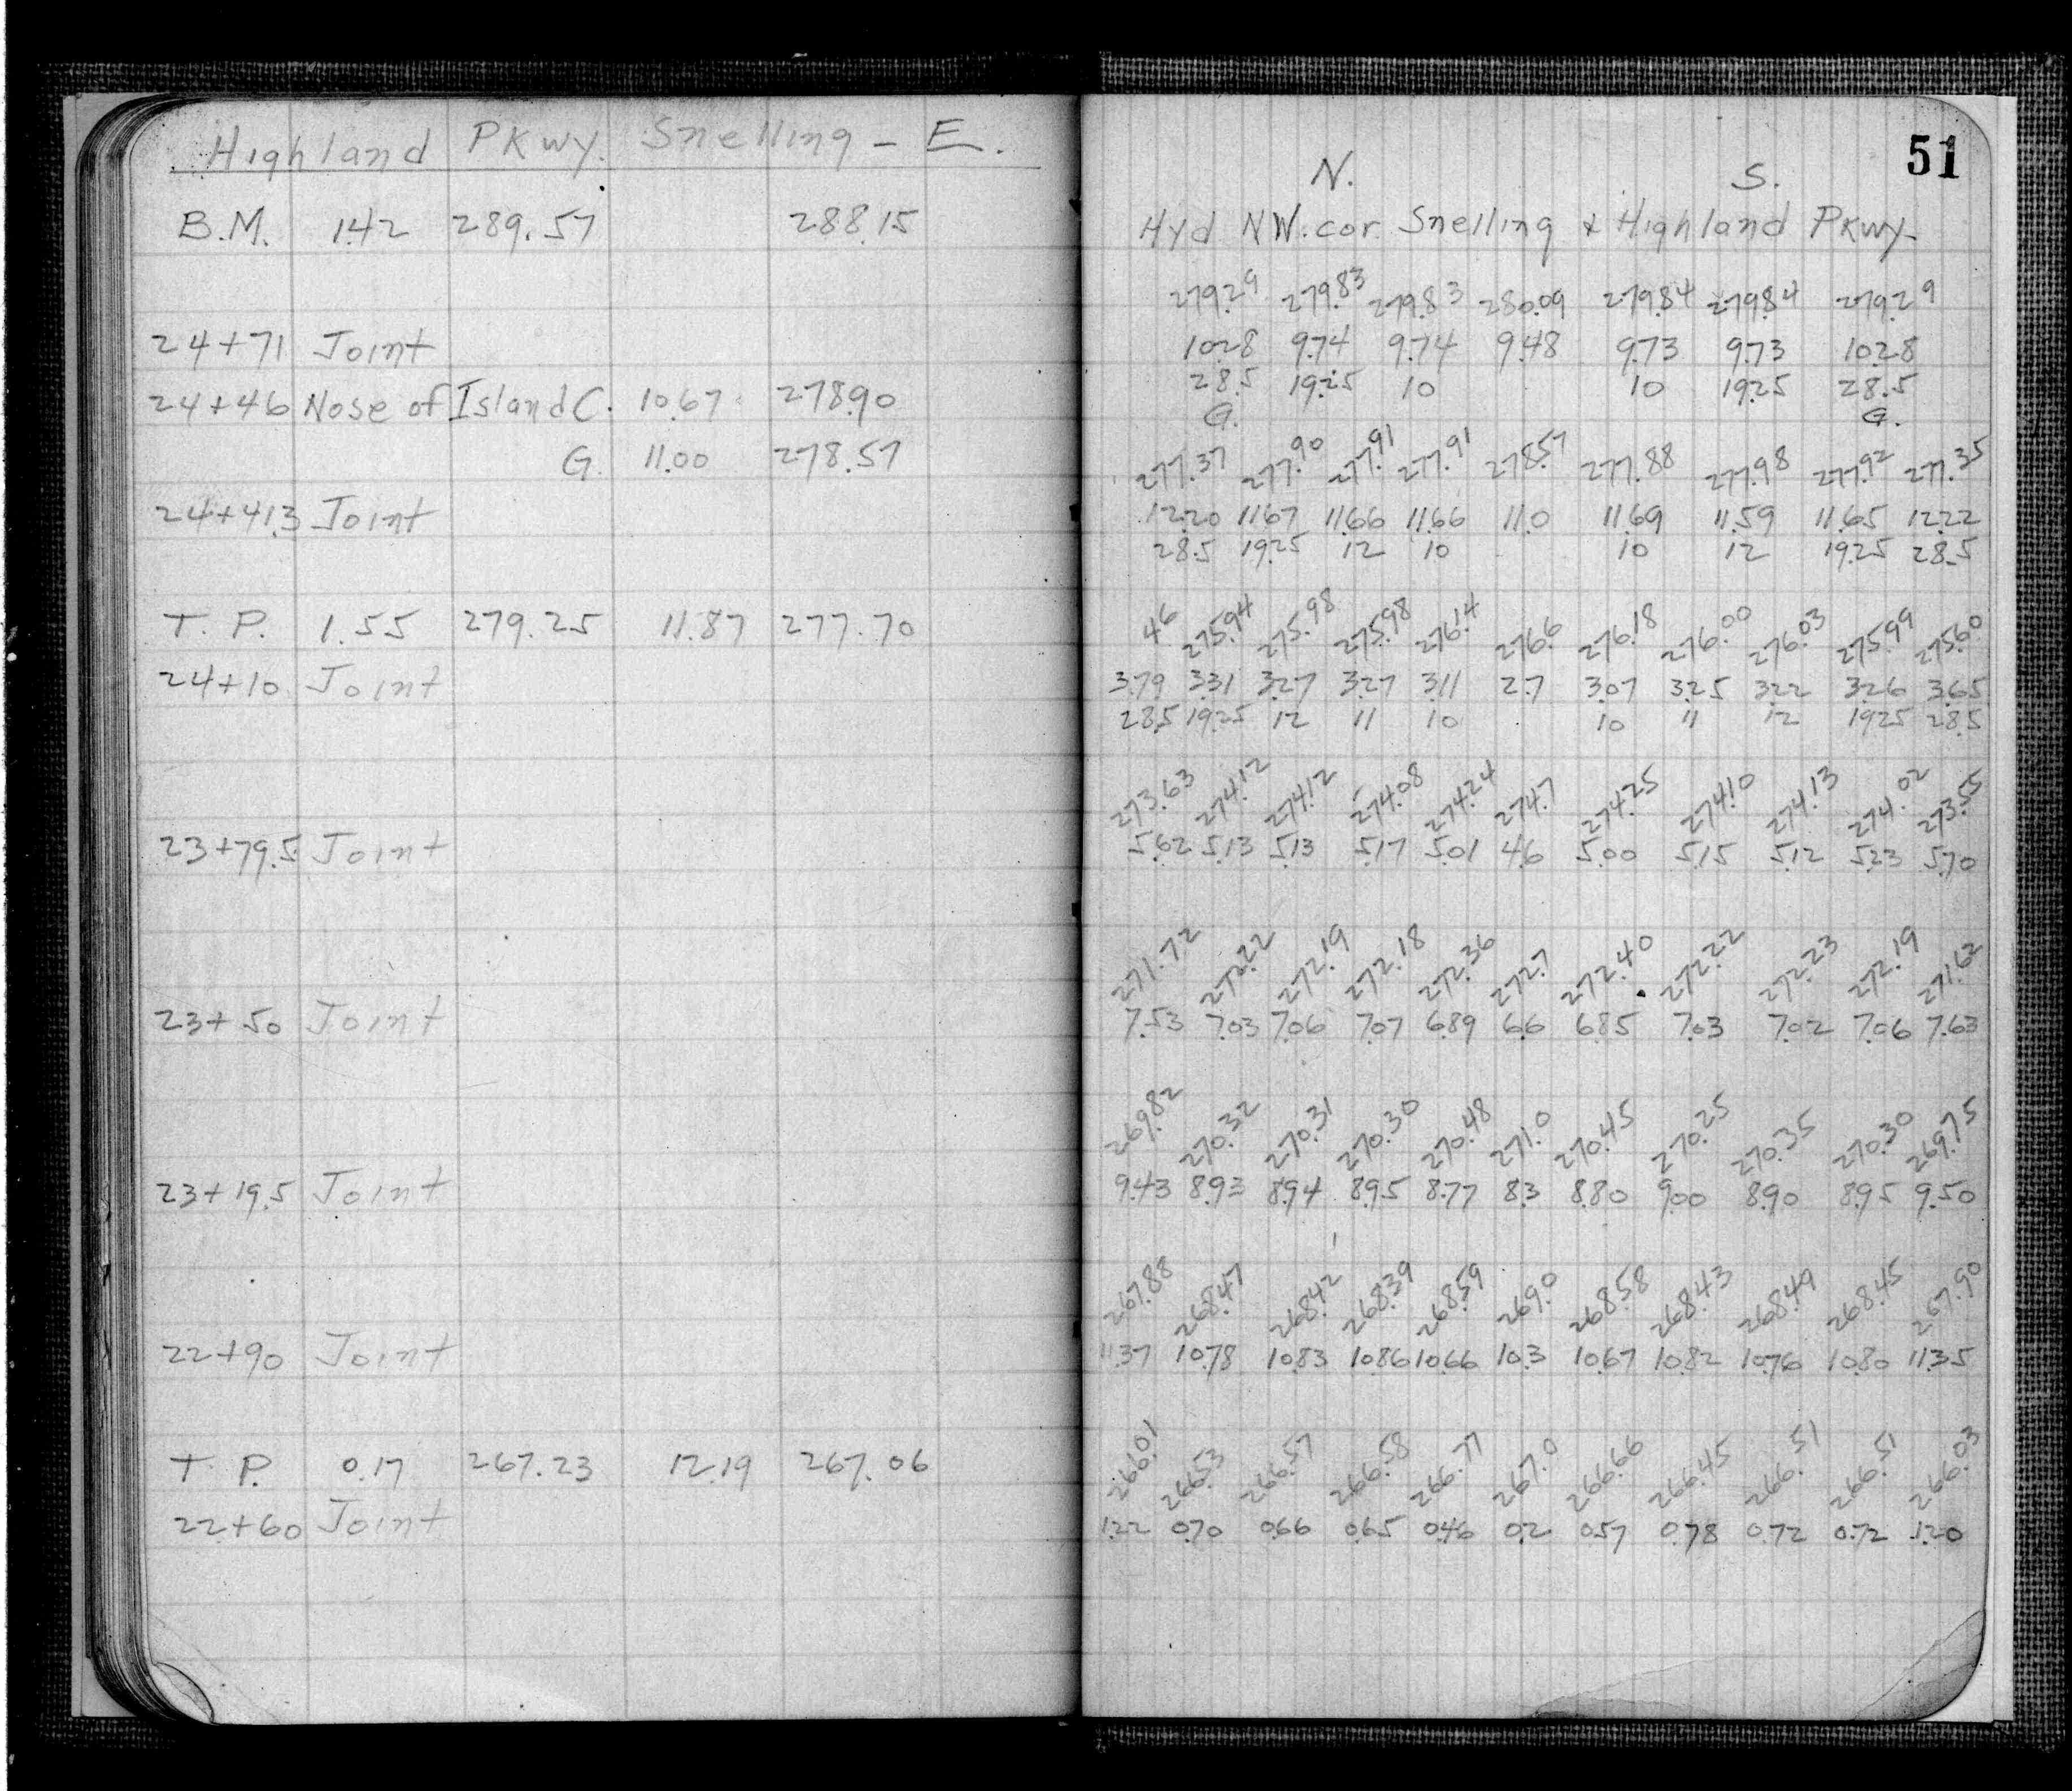 Highland PKwy. Snelling - E.
B.M. 1.42 289.57 288.15
24+71 Joint
24+46 Nose of Island C. 10.67 278.90
G. 11.00 278.57
24+41.3 Joint
T. P. 1.55 279.25 11.87 277.70
24+10 Joint
23+79.5 Joint
23+50 Joint
23+19.5 Joint
22+90 Joint
T. P. 0.17 267.23 12.19 267.06
22+60 Joint
51
N. S.
Hyd NW. cor. Snelling & Highland PKwy-
279.29 279.83 279.83 280.09 279.84 279.84 279.29
10.28 9.74 9.74 9.48 9.73 9.73 10.28
28.5 19.25 10 10 19.25 28.5
G. G.
277.37 277.90 277.91 277.91 278.57 277.88 277.98 277.92 277.35
12.20 11.67 11.66 11.66 11.0 11.69 11.59 11.65 12.22
28.5 19.25 12 10 10 12 19.25 28.5
46 275.94 275.98 275.98 276.14 276.6 276.18 276.00 276.03 275.99 275.60
3.79 3.31 3.27 3.27 3.11 2.7 3.07 3.25 3.22 3.26 3.65
28.5 19.25 12 11 10 10 11 12 19.25 28.5
273.63 274.12 274.12 274.08 274.24 274.7 274.25 274.10 274.13 274.02 273.55
5.62 5.13 5.13 5.17 5.01 4.6 5.00 5.15 5.12 5.23 5.70
271.72 272.22 272.19 272.18 272.36 272.7 272.40 272.22 272.23 272.19 271.62
7.53 7.03 7.06 7.07 6.89 6.6 6.85 7.03 7.02 7.06 7.63
269.82 270.32 270.31 270.30 270.48 271.0 270.45 270.25 270.35 270.30 269.75
9.43 8.93 8.94 8.95 8.77 8.3 8.80 9.00 8.90 8.95 9.50
267.88 268.47 268.42 268.39 268.59 269.0 268.58 268.43 268.49 268.45 267.90
11.37 10.78 10.83 10.86 10.66 10.3 10.67 10.82 10.76 10.80 11.35
266.01 266.53 266.57 266.58 266.77 267.0 266.66 266.45 266.51 266.51 266.03
1.22 0.70 0.66 0.65 0.46 0.2 0.57 0.78 0.72 0.72 1.20